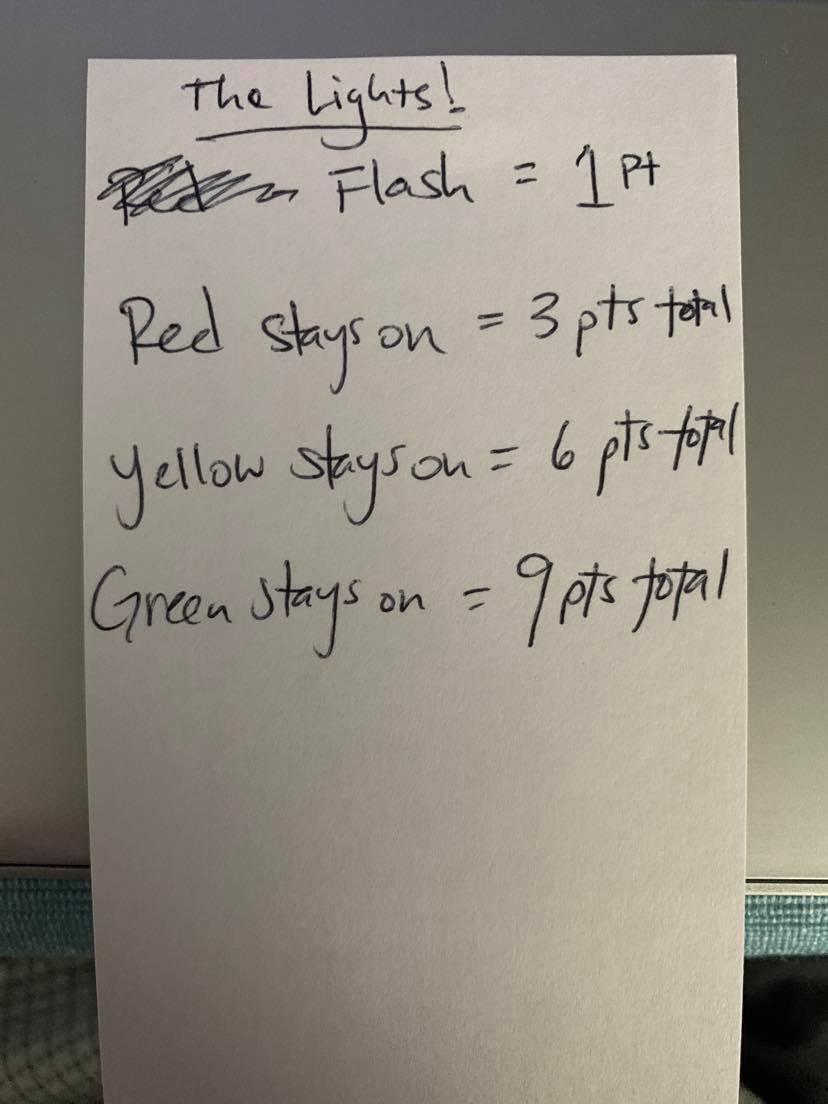 The Lights!
Flash = 1 Pt
Red stays on = 3 pts total
Yellow stays on = 6 pts total
Green stays on = 9 pts total